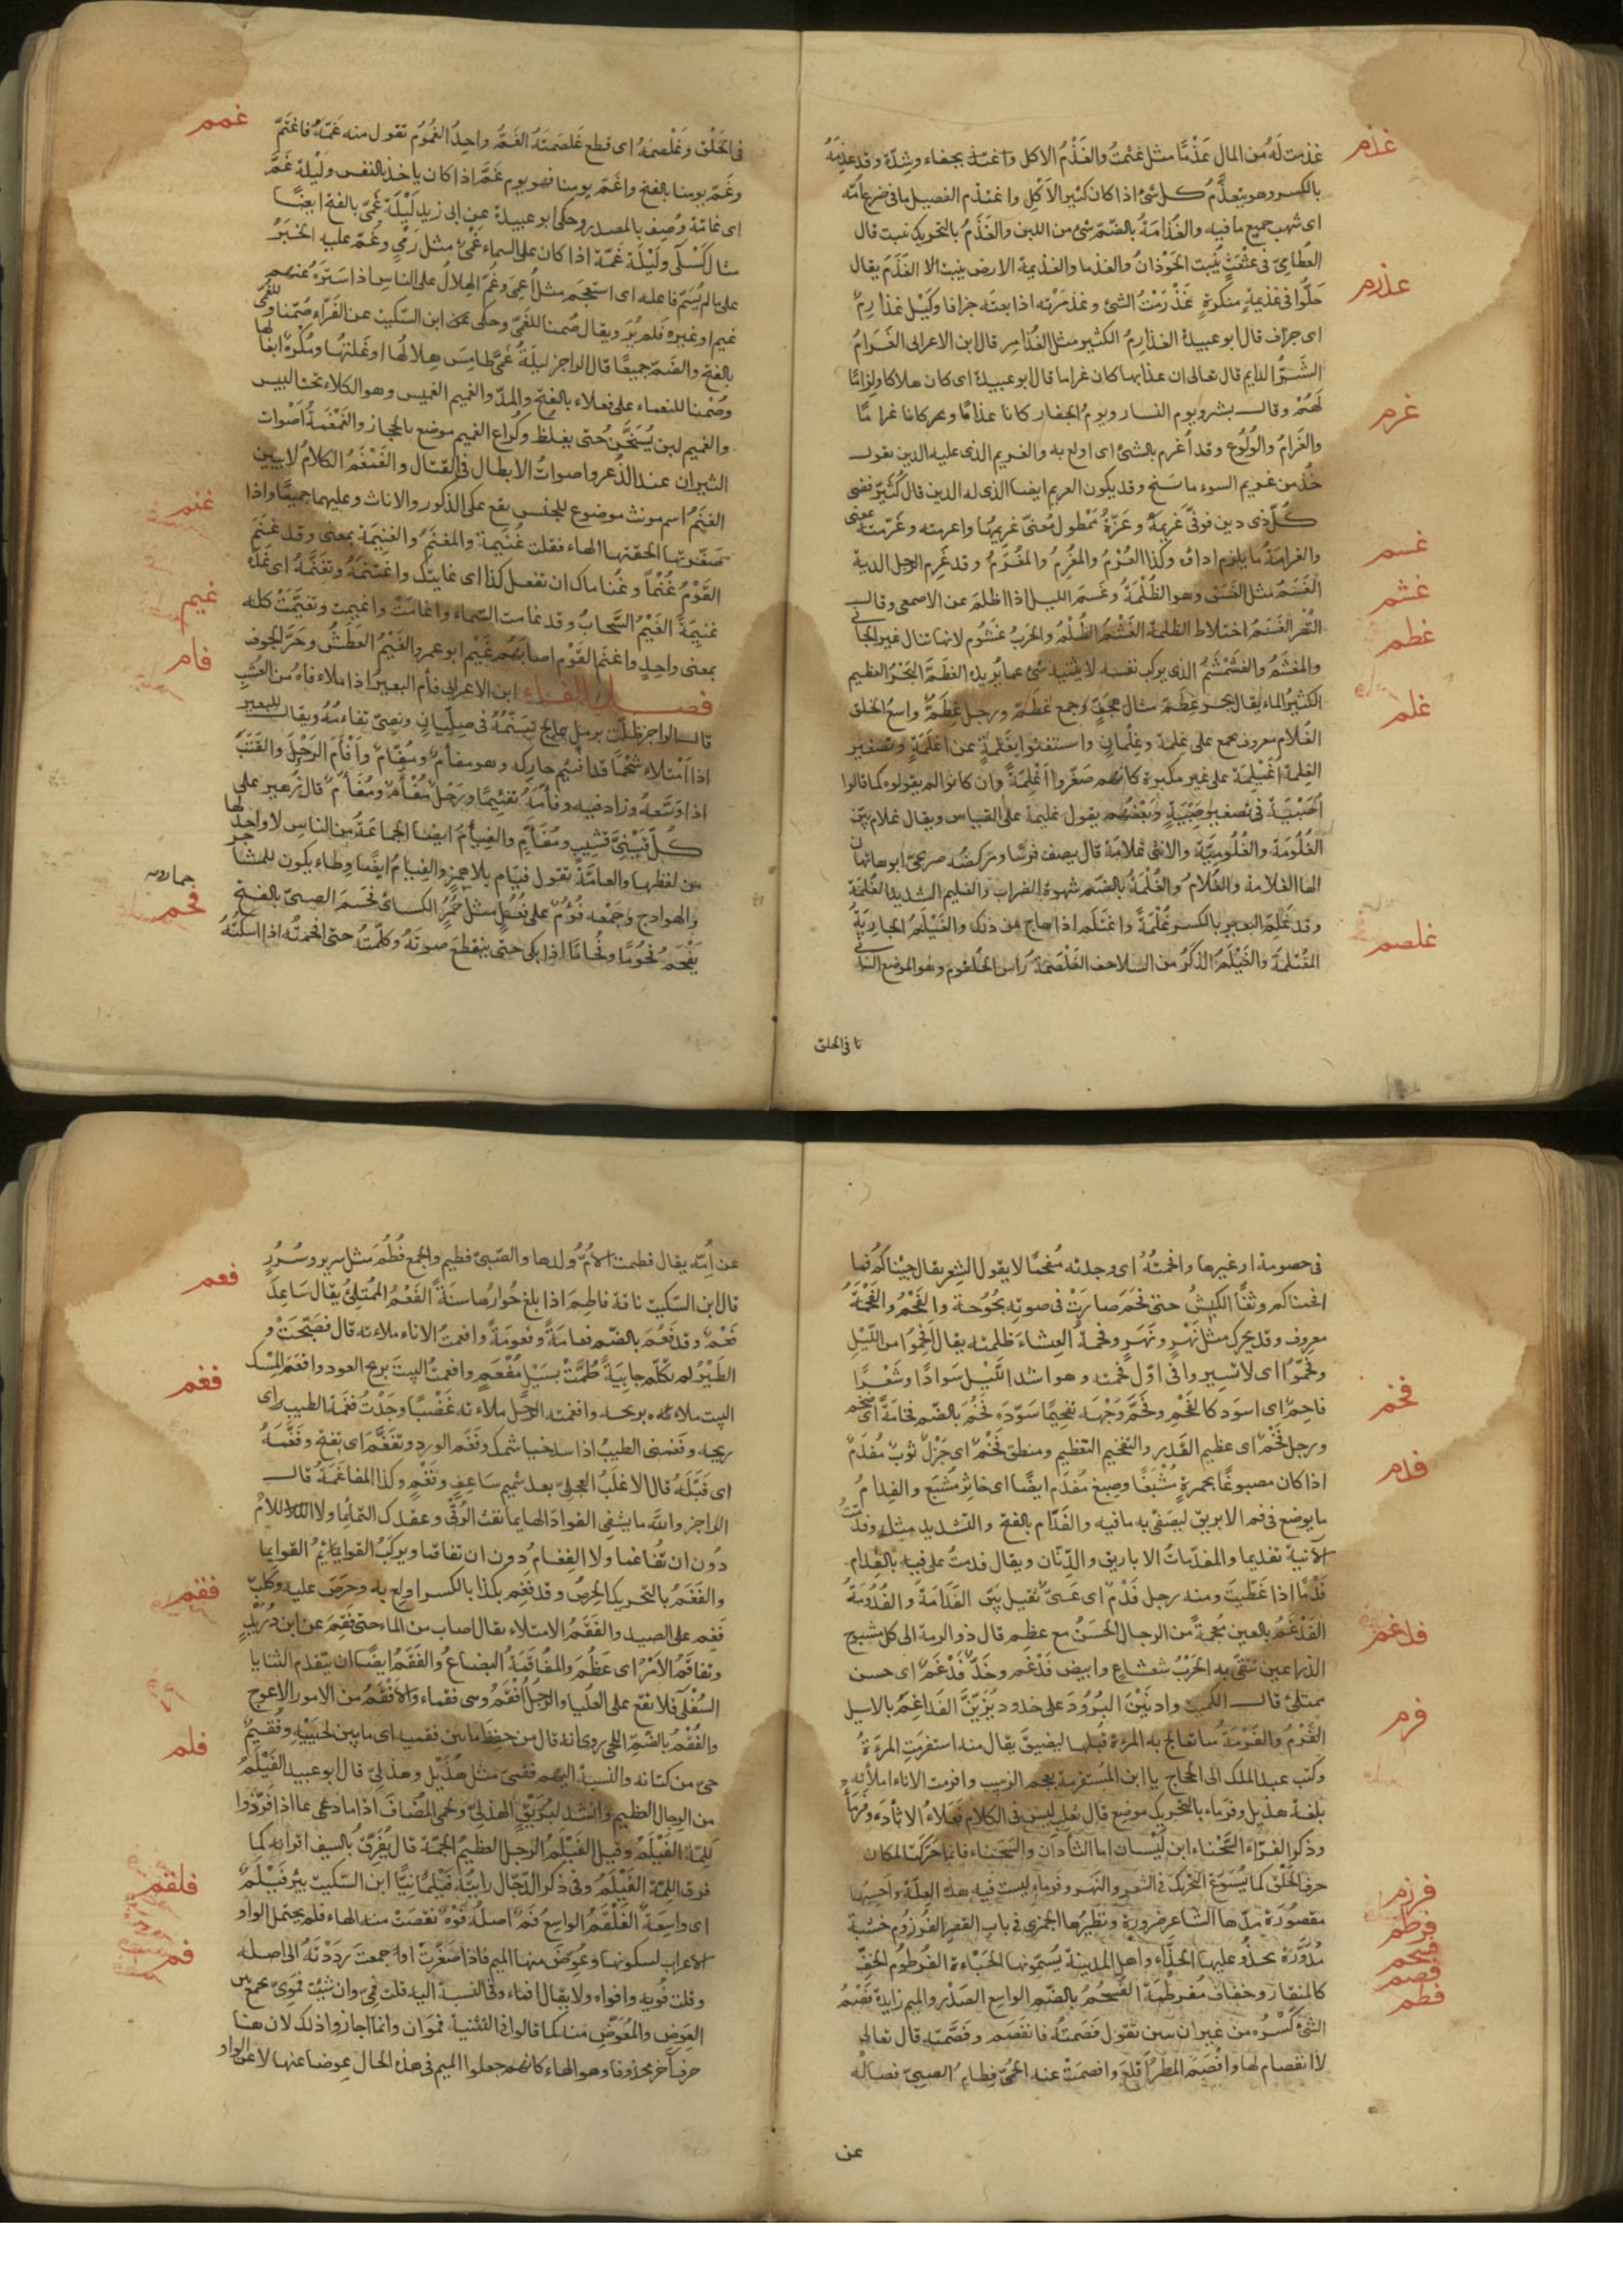 غذم
غذمت له من المال غذما مثل غثمت والغذم الاكل بجفاء وشدة وقد غذمه
بالكسر وهو يتغذم كل شئ اذا كان كثير الاكل واغتذم الفصيل ما فى ضرع امه
اى شرب جميع ما فيه والغذامة بالضم شئ من اللبن والغذم بالتحريك نبت قال
القطامى فى عثعث ينبت الحوذان والغذما والغذيمة الارض ينبت الا الغذم يقال
غذرم
حلوا فى غذيمة منكرة غذرمت الشئ وغذمرته اذا بعته جزافا وكيل غذارم
اى جزاف قال ابو عبيدة الغذارم الكثير مثل الغذامر قال ابن الاعرابى الغرام
الشر الدايم قال تعالى ان عذابها كان غراما قال ابو عبيدة اى كان هلاكا ولزاما
غرم
لهم وقال بشر ويوم النسار ويوم الجفار كانا عذابا وكانا غراما
والغرام والولوع وقد اغرم بالشئ اى اولع به والغريم الذى عليه الدين يقول
خذ من غريم السوء ما سنح وقد يكون الغريم ايضا الذى له الدين قال كثير قضى
كل ذى دين فوفى غريمه وعزة ممطول معنى غريمها واغرمته وغرمته بمعنى
غسم
والغرامة ما يلزم اداؤه وكذا الغرم والمغرم والمغرم وقد غرم الرجل الدية
غشم
الغسم مثل الغسق وهو الظلمة وغسم الليل اذا اظلم عن الاصمعى وقال
غطم
النضر الغسم اختلاط الظلمة الغشم الظلم والحرب غشوم لانها تنال غير الجانى
والمغشم والغشمشم الذى يركب نفسه لا يثنيه شئ عما يريد الغطم البحر العظيم
غلم
الكثير الماء يقال بحر غطم مثال هجف وجمع غطم ورجل غطم واسع الخلق
الغلام معروف يجمع على غلمة وغلمان واستغنوا بغلمة عن اغلمة وتصغير
الغلمة اغيلمة على غير مكبرة كانهم صغروا اغلمة وان كانوا لم يقولوه كما قالوا
اصبية فى تصغير صبية وبعضهم يقول غليمة على القياس ويقال غلام بين
الغلومة والغلومية والانثى غلامة قال يصف فرسا ومركضة صريحى ابوها تهان
لها الغلامة والغلام والغلمة بالضم شهوة الضراب والغليم الشديد الغلمة
غلصم
وقد غلم البعير بالكسر غلمة واغتلم اذا هاج من ذلك والغيلم الجارية
المغتلمة والغيلم الذكر من السلاحف الغلصمة راس الحلقوم وهو الموضع الناتى
تا فى الحلق
غمم
فى الحلق وغلصمه اى قطع غلصمته الغم واحد الغموم تقول منه غمه فاغتم
وغم يومنا بالفتح واغم يومنا فهو يوم غم اذا كان ياخذ بالنفس وليلة غم
اى غامة وصف بالمصدر وحكى ابو عبيدة عن ابى زيد ليلة غمى بالفتح ايضا
مثال كسلى وليلة غمة اذا كان على السماء غمى مثل رمى وغم عليه الخبر
على ما لم يسم فاعله اى استعجم مثل اغمى وغم الهلال على الناس اذا ستره عنهم
غيم او غيره فلم ير ويقال صمنا للغمى وحكى ابن السكيت عن الفراء صمنا للغمى
بالفتح والضم جميعا قال الراجز ليلة غمى طامس هلالها اوغلتها ومكره ايغالها
وصمنا للغماء على فعلاء بالفتح والمد والغميم الغميس وهو الكلاء تحت اليبيس
والغميم لبن يسخن حتى يغلظ وكراع الغميم موضع بالحجاز والغمغمة اصوات
الثيران عند الذعر واصوات الابطال فى القتال والتغمغم الكلام لا يبين
غنم
الغنم اسم مونث موضوع للجنس يقع على الذكور والاناث وعليهما جميعا واذا
صغرتها الحقتها الهاء فقلت غنيمة والمغنم والغنيمة بمعنى وقد غنم
القوم غنما وغناماك ان تفعل كذا اى غايتك واغتنمه وتغنمه اى عده
غيم
غنيمة الغيم السحاب وقد غامت السماء واغامت واغيمت وتغيمت كله
بمعنى واحد واغيم القوم اصابهم غيم ابو عمرو الغيم العطش وحر الجوف
فام
فصل الفاء ابن الاعرابى فأم البعير اذا ملاء فاه من العشب
قال الراجز ظلت برمل عالج تسنمه فى صليان ونصى تفاءمه ويقال للبعير
اذا امتلاء شحما قد فئم حاركه وهو مفأم ومفام وافأم الرحل والقتب
اذا وسعه وزاد فيه وفأمه تفئيما ورحل مفأم ومفأم قال زهير على
كل قينى قشيب ومفأم والفيأم ايضا الجماعة من الناس لا واحد لها
من لفظها والعامة تقول فيام بلا همز والفيام ايضا وطاء يكون للمشاجر
والهوادج وجمعه فؤم على فعل مثل خمر الكسائى فحم الصبى بالفتح
فحم
يفحم فحوما وفحاما اذا بكى حتى ينقطع صوته وكلمته حتى افحمته اذا اسكته
فى خصومة او غيرها وافحمته اى وجدته مفحما لا يقول الشعر يقال هجيناكم فما
افحمناكم وثغا الكبش حتى فحم صار فى صوته بحوحة والفحم والفحمة
معروف وقد يحرك مثل نهر ونهر وفحمة العشاء ظلمته يقال افحموا من الليل
وفحموا اى لا تسيروا فى اول فحمته وهو اشد الليل سوادا وشعر
فخم
فاحم اى اسود كالفحم وفحم وجهه تفحيما سوده فخم بالضم فخامة اى ضخم
ورجل فخم اى عظيم القدر والتفخيم التعظيم ومنطق فخم اى جزل ثوب مفدم
فدم
اذا كان مصبوغا بحمرة مشبعا وصبغ مفدم ايضا اى خاثر مشبع والفدام
ما يوضع فى فم الابريق ليصفى به ما فيه والفدام بالفتح والتشديد مثله وفدمت
الآنية تفديما والمفدمات الاباريق والدنان ويقال فدمت على فيه بالفدام
فدما اذا غطيت ومنه رجل فدم اى عيى ثقيل بين الفدامة والفدومة
فدغم
الفدغم بالغين معجمة من الرجال الحسن مع عظم قال ذو الرمة الى كل مشبوح
الذراعين تتقى به الحرب شعشاع وابيض فدغم وخد فدغم اى حسن
ممتلئ قال الكميت وادنين البرود على خدود يزين الفداغم بالاسيل
فرم
الفرم والفرمة ما تعالج به المرءة قبلها ليضيق يقال منه استفرمت المرءة
وكتب عبد الملك الى الحجاج يا ابن المستفرمة بعجم الزبيب وافرمت الاناء املأته
بلغة هذيل وفرماء بالتحريك موضع قال ثعلب ليس فى الكلام فعلاء الا ثأداء وفرماء
وذكر الفراء السحناء ابن كيسان اما الثأداء والسحناء فانما حركتا لمكان
حرف الحلق كما يسوغ التحريك فى الشعر والنهر وفرماء ليست فيه هذه العلة واحسبها
فرزم
مقصورة مدها الشاعر ضرورة ونظيرها الجمزى فى باب القصر الفرزوم خشبة
فرطم
مدورة يحذو عليها الحذاء واهل المدينة يسمونها الجباءة الفرطوم الخف
فسحم
كالمنقار وخفاف مفرطمة الفسحم بالضم الواسع الصدر والميم زايدة فصم
فصم
الشئ كسره من غير ان يبين تقول فصمته فانفصم وفصمته قال تعالى
فطم
لا انفصام لها وافصم المطر اقلع وافصمت عنه الحمى فطام الصبى فصاله
عن
عن امه يقال فطمت الام ولدها والصبى فطيم والجمع فطم مثل سرير وسرر
فعم
قال ابن السكيت ناقة فاطم اذا بلغ حوارها سنة الفعم الممتلئ يقال ساعد
فعم وقد فعم بالضم فعامة وفعومة وافعمت الاناء ملاءته قال فصبحت و
الطير لم تكلم جابية طمت بسيل مفعم وافعمت البيت بريح العود وافعم المسك
فغم
البيت ملاءه بريحه وافعمت الرجل ملاءته غضبا وجدت فغمة الطيب اى
ريحه وفغمنى الطيب اذا سد خياشمك وفغم الورد وتفغم اى تفتح وفغمه
اى قبله قال الاغلب العجلى بعد شميم ساعف وفغم وكذا المفاغمة قال
الراجز والله ما يشفى الفواد الهايما نفث الرقى وعقدك التمائما ولا اللمام
دون ان تفاغما ولا الفغام دون ان تفاقما ويركب القوايم القوايما
والفغم بالتحريك الحرص وقد فغم بكذا بالكسر اولع به وحرص عليه وكلب
فقم
فغم على الصيد والفقم الامتلاء يقال اصاب من الماء حتى فقم عن ابن دريد
وتفاقم الامر اى عظم والمفاقمة البضاع والفقم ايضا ان يتقدم الثنايا
السفلى فلا تقع على العليا والرجل افقم وهى فقماء والافقم من الامور الاعوج
والفقم بالضم اللحى روى انه قال من حفظ ما بين فقميه اى ما بين لحييه وفقيم
فلم
حى من كنانة والنسبة اليهم فقمى مثل هذيل وهذلى قال ابو عبيد الفيلم
من الرجال العظيم وانشد لبريق الهذلى ويحمى المضاف اذا ما دعى اذا فر ذو
اللمة الفيلم وقيل الفيلم الرجل العظيم الجمة قال يفرق بالسيف اقرانه كما
فرق اللمة الفيلم وفى ذكر الدجال رايته فيلمانيا ابن السكيت بئر فيلم
فلقم
اى واسعة الفلقم الواسع فم اصله فوه نقصت منه الهاء فلم يحتمل الواو
فم
الاعراب لسكونها وعوض منها الميم فاذا صغرت او جمعت رددته الى اصله
وقلت فويه وافواه ولا يقال افماء وفى النسبة اليه قلت فمى وان شئت فموى تجمع بين
العوض والمعوض منه كما قالوا فى التثنية فموان وانما اجازوا ذلك لان هنا
حرفا آخر محذوفا وهو الهاء كانهم جعلوا الميم فى هذه الحال عوضا عنها لا عن الواو